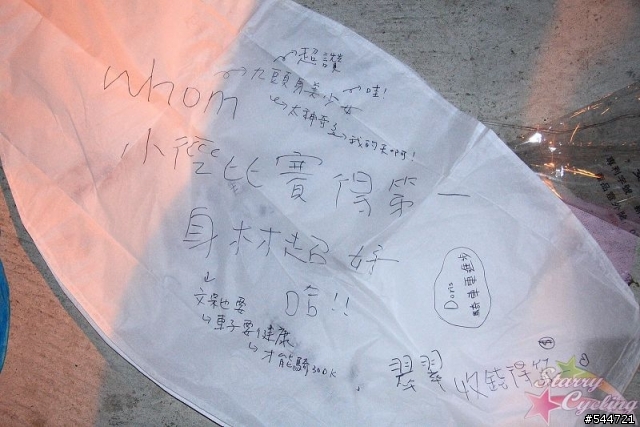 超讚
whom
九頭身美少女
哇!
太神奇
我的天啊!
小徑比賽得第一
身材超好
哈!!
文彩也要
車子要健康
才能騎300K
Doris
騎車車進步
翠翠
收錢得
Starry
Cycling
#544721